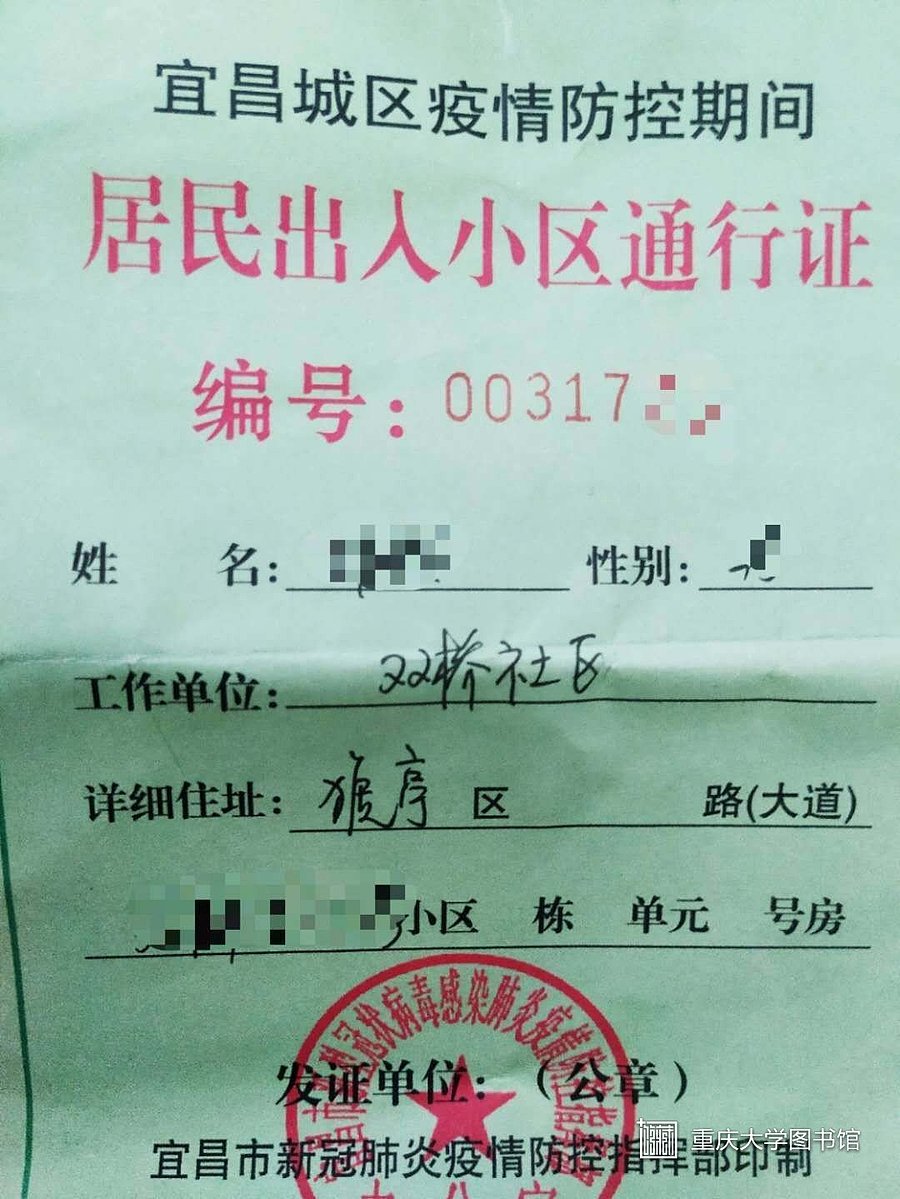 宜昌城区疫情防控期间
居民出入小区通行证
编号：00317
姓 名： 性别：
工作单位：双桥社区
详细住址：猇亭 区 路(大道)
小区 栋 单元 号房
冠状病毒感染肺炎疫情防控指挥
发证单位：（公章）
宜昌市新冠肺炎疫情防控指挥部印制
重庆大学图书馆